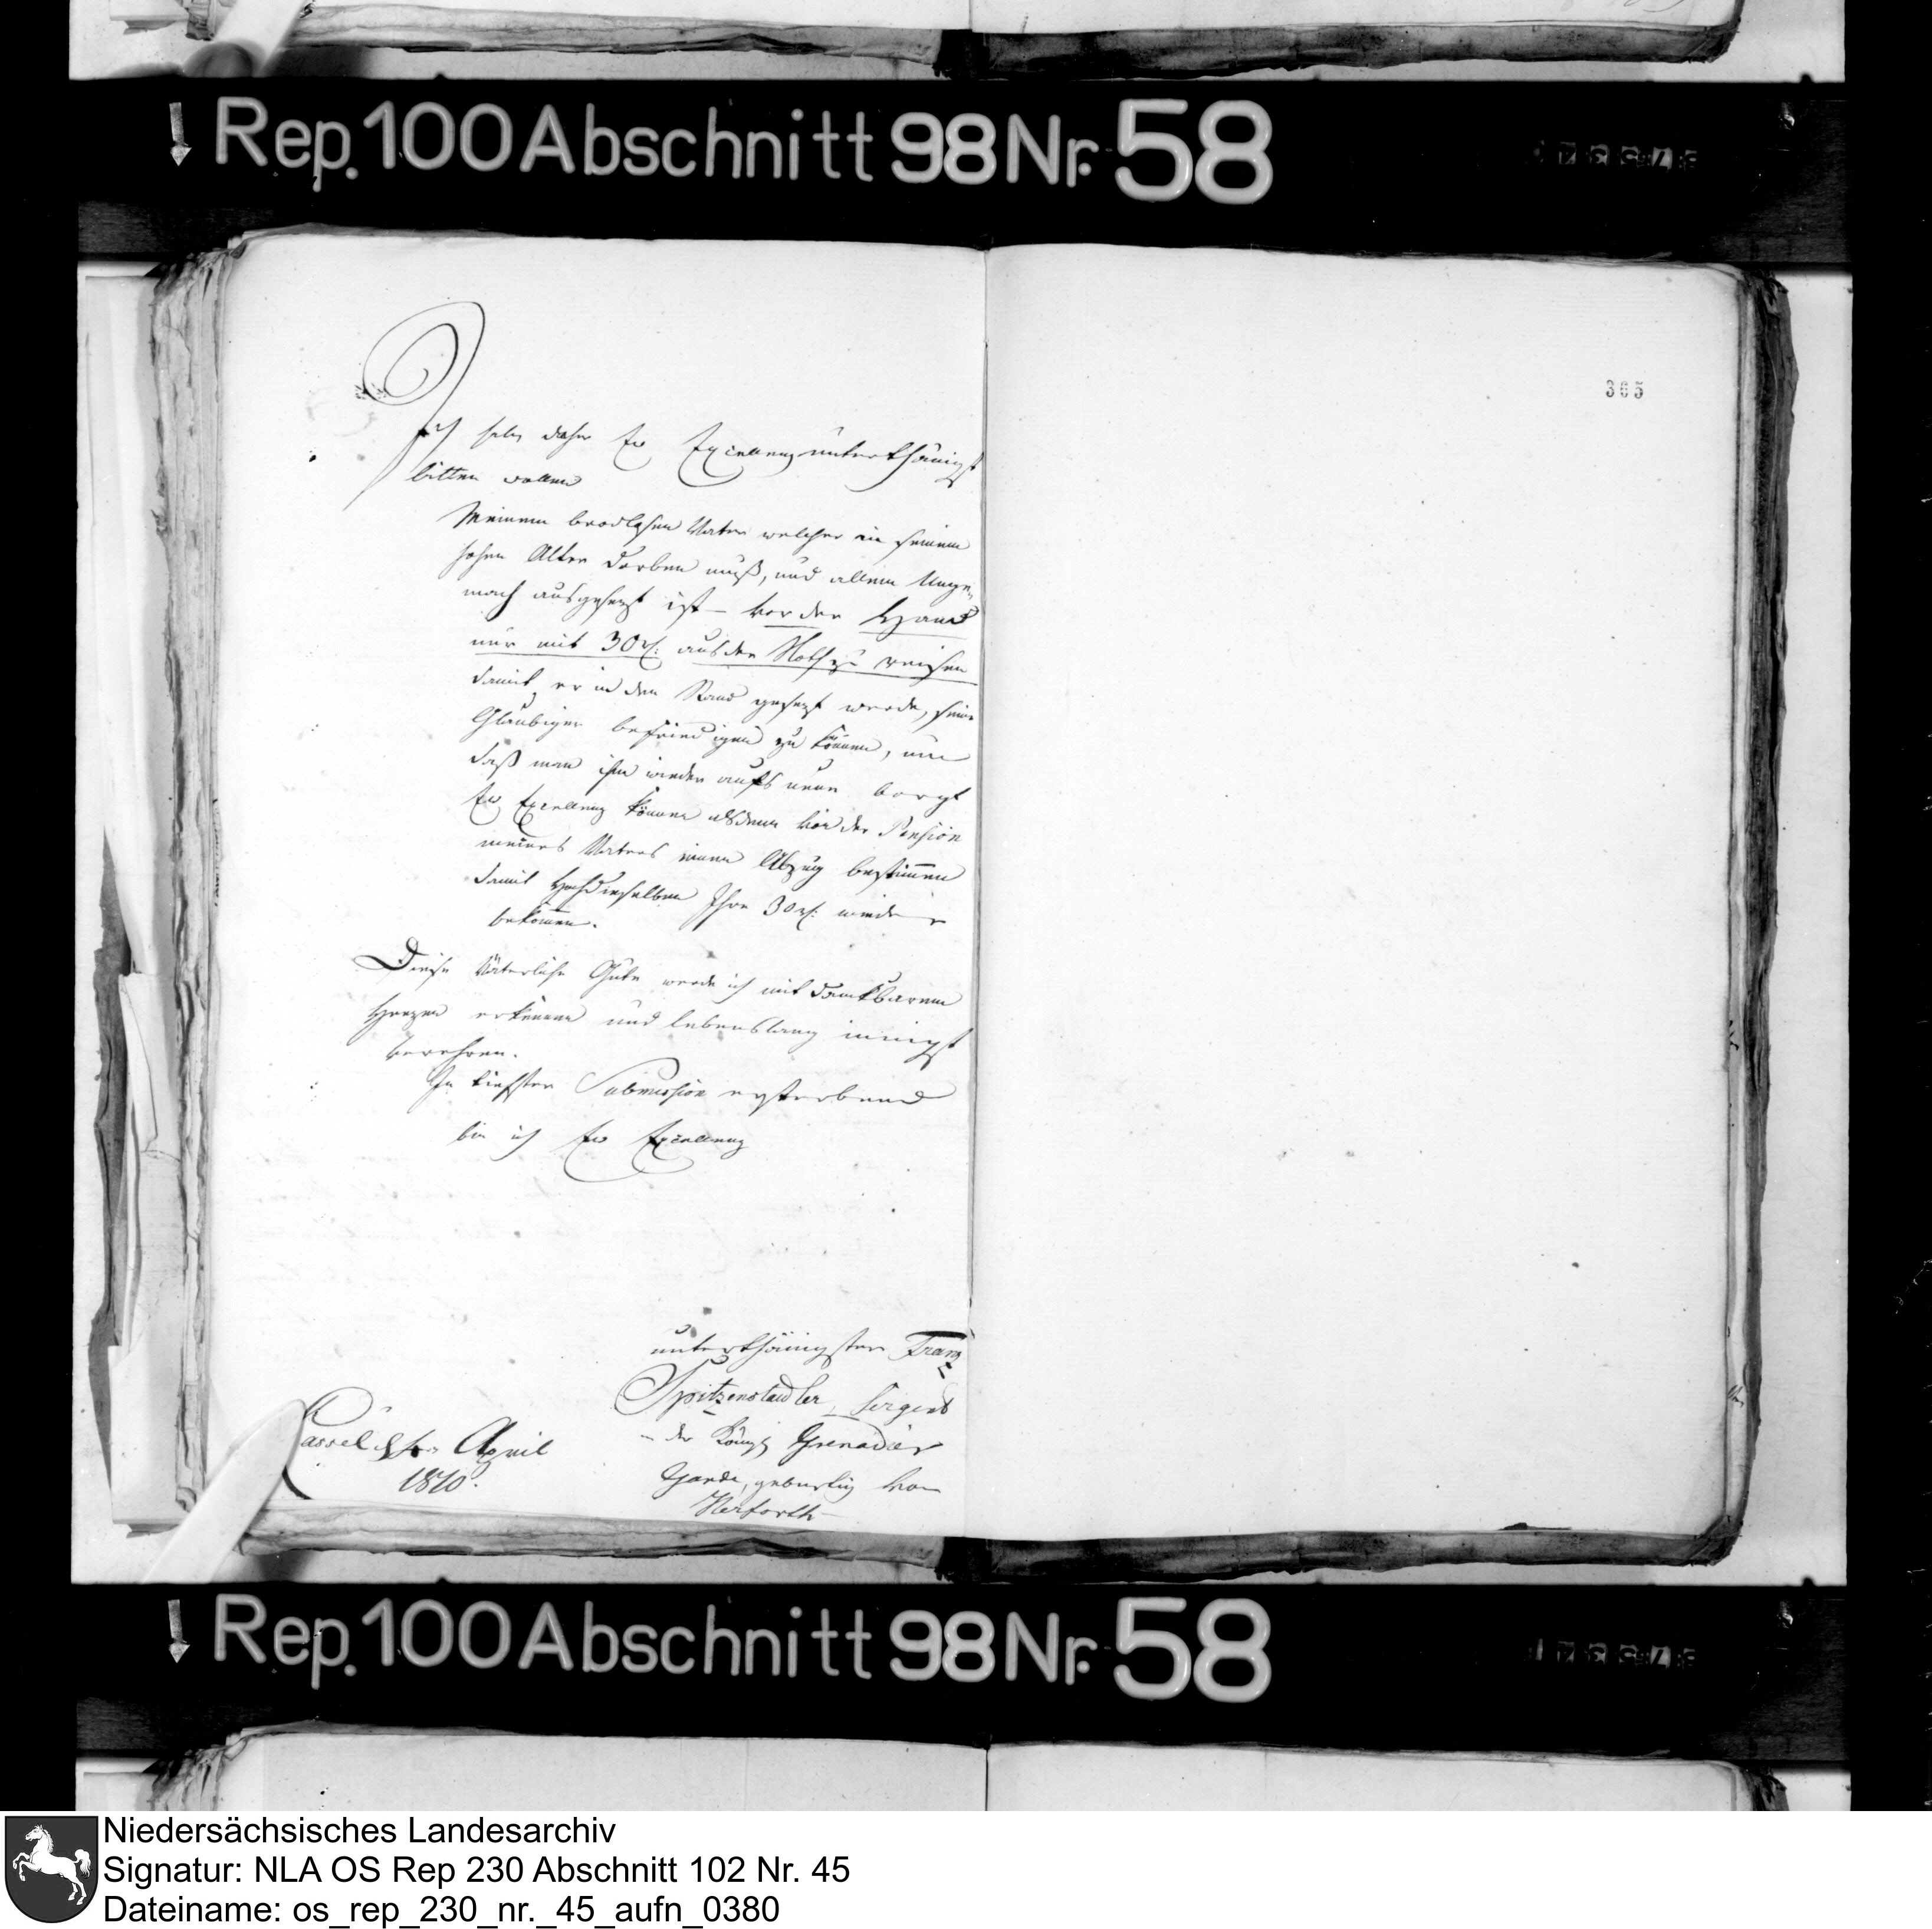 Rep. 100 Abschnitt 98 Nr. 58
305
Ich habe daher Ew Excellenz unterthänigst
bitten wollen
Meinem brodlosen Vater welcher in seinem
hohen Alter darben muß, und allem Unge-
mach ausgesezt ist – vor der Hand
nur mit 30 rth: aus der Noth zu reißen
damit er in den Stand gesezt werde, seine
Gläubiger befriedigen zu können, und
daß man ihm wieder aufs neue borgt
Ew Excellenz können alsdenn von der Pension
meines Vaters einen Abzug bestimmen
damit Hochdieselben Ihre 30 rth: wieder
bekommen.
Diese Väterliche Güte werde ich mit dankbarem
Herzen erkennen und lebenslang innigst
verehren.
In tiefster Submission ersterbend
bin ich Ew Excellenz
unterthänigster Franz
Spitzenstaedler, Sergent
in der Königl Grenadier
Garde, gebürtig von
Herforth
Cassel April
1810.
Rep. 100 Abschnitt 98 Nr. 58
Niedersächsisches Landesarchiv
Signatur: NLA OS Rep 230 Abschnitt 102 Nr. 45
Dateiname: os_rep_230_nr._45_aufn_0380